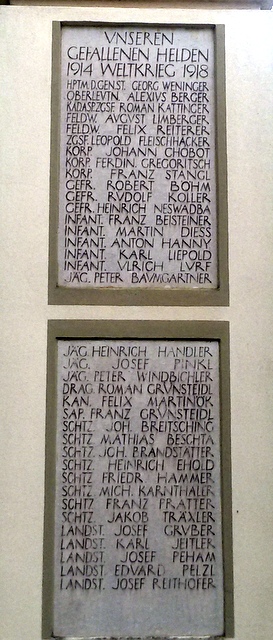 VNSEREN
GEFALLENEN HELDEN
1914 WELTKRIEG 1918
HPTM.D.GEN.ST. GEORG WENINGER
OBERLEVTN. ALEXIVS BERGER
KADASP.ZGSF. ROMAN KATTINGER
FELDW. AVGVST LIMBERGER
FELDW. FELIX REITERER
ZGSF. LEOPOLD FLEISCHHACKER
KORP. JOHANN CHOBOT
KORP. FERDIN. GREGORITSCH
KORP. FRANZ STANGL
GEFR. ROBERT BÖHM
GEFR. RVDOLF KOLLER
GEFR. HEINRICH NESWADBA
INFANT. FRANZ BEISTEINER
INFANT. MARTIN DIESS
INFANT. ANTON HANNY
INFANT. KARL LIEPOLD
INFANT. VLRICH LVRF
JÄG. PETER BAVMGARTNER
JÄG. HEINRICH HANDLER
JÄG. JOSEF PINKL
JÄG. PETER WINDBICHLER
DRAG. ROMAN GRVNSTEIDL
KAN. FELIX MARTINOK
SAP. FRANZ GRVNSTEIDL
SCHTZ. JOH. BREITSCHING
SCHTZ. MATHIAS BESCHTA
SCHTZ. JOH. BRANDSTÄTTER
SCHTZ. HEINRICH EHOLD
SCHTZ. FRIEDR. HAMMER
SCHTZ. MICH. KARNTHALER
SCHTZ. FRANZ PRATTER
SCHTZ. JAKOB TRÄXLER
LANDST. JOSEF GRVBER
LANDST. KARL JEITLER
LANDST. JOSEF PEHAM
LANDST. EDVARD PELZL
LANDST. JOSEF REITHOFER